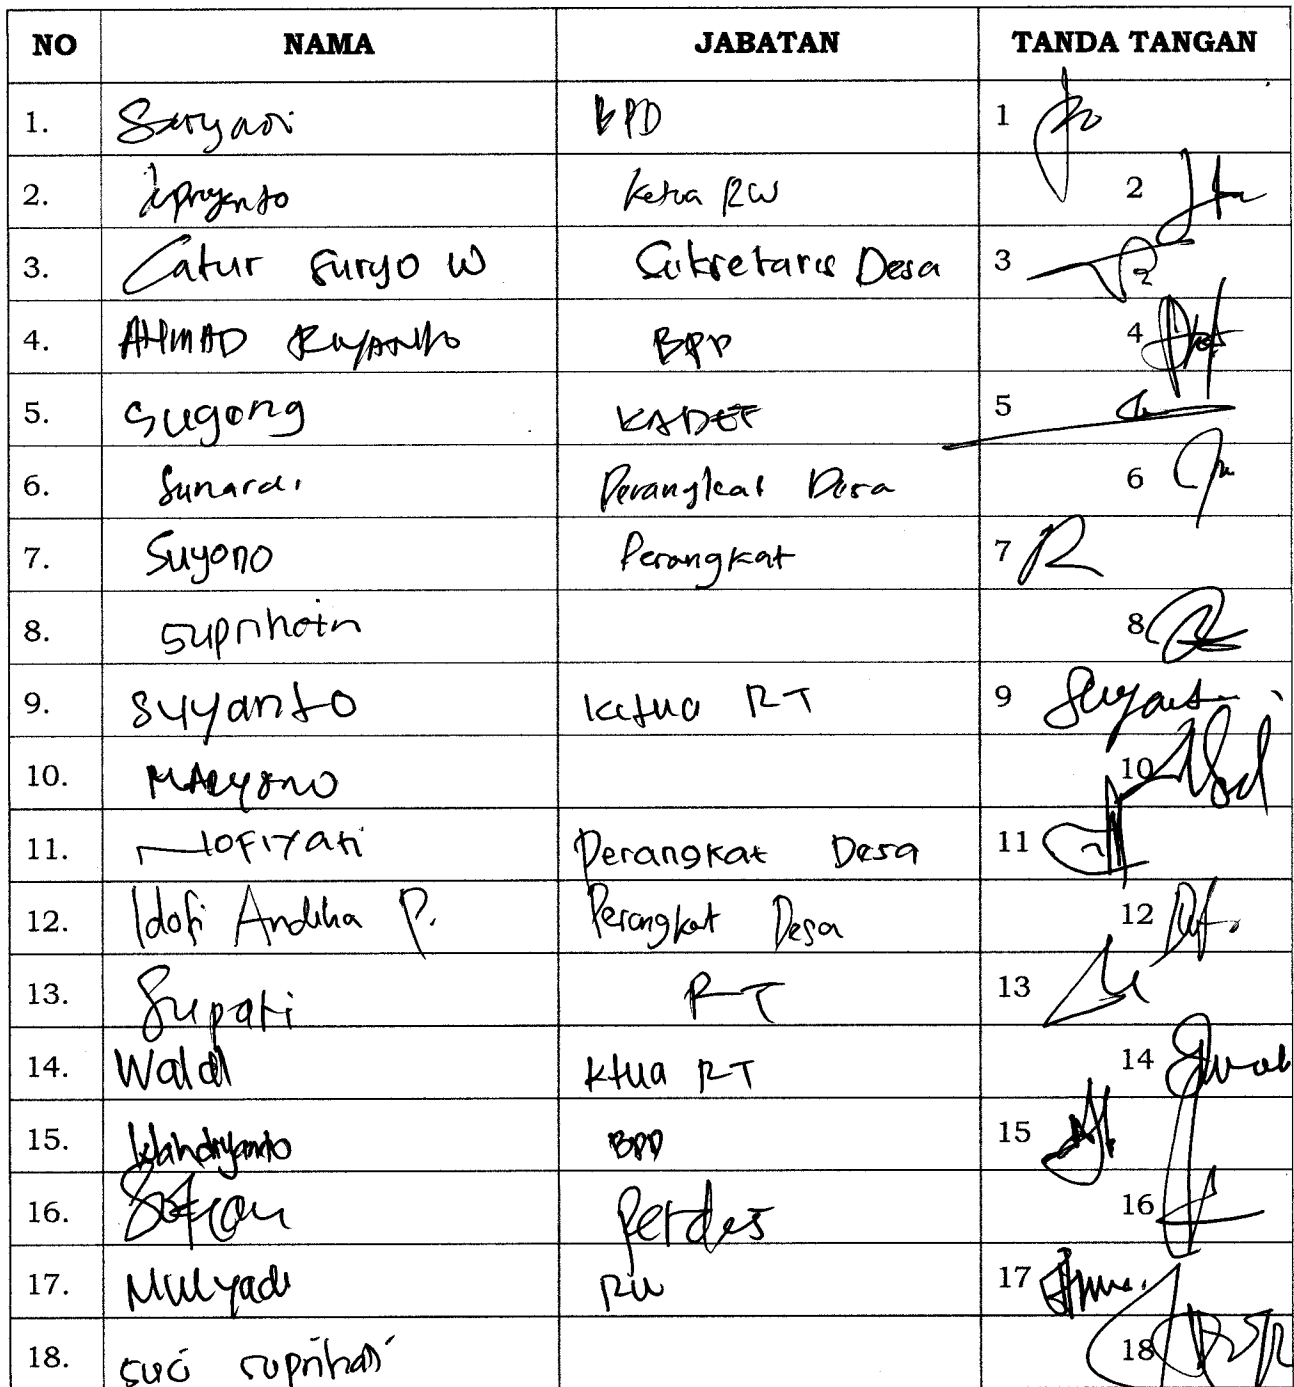 NO NAMA JABATAN TANDA TANGAN
1. Suryadi BPD 1
2. Ketua RW 2
3. Catur Suryo W Sekretaris Desa 3
4. AHMAD RIYANTO BPD 4
5. Sugeng 5
6. Sunardi Perangkat Desa 6
7. Suyono Perangkat 7
8. Suprihatin 8
9. Suyanto Ketua RT 9 Suyant
10. MARYONO 10
11. NOFIYATI Perangkat Desa 11
12. Idofi Andika P. Perangkat Desa 12
13. Supati RT 13
14. Waldi Ktua RT 14
15. BPD 15
16. Perdes 16
17. Mulyadi RW 17
18. Suci Suprihati 18